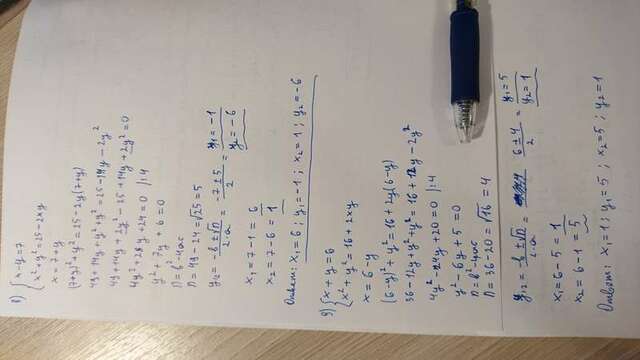 8) { x-y=7
x²+y²=25-2xy
x=7+y
(7+y)²+y²=25-2y(7+y)
49+14y+y²+y²=25-14y-2y²
49+14y+2y²-25+14y+2y²=0
4y²+28y+24=0 |:4
y²+7y+6=0
D=b²-4ac
D=49-24=√25=5
y₁,₂=(-b±√D)/(2·a)=(-7±5)/2= y₁=-1
y₂=-6
x₁=7-1=6
x₂=7-6=1
Ответ: x₁=6; y₁=-1; x₂=1; y₂=-6
9) { x+y=6
x²+y²=16+2xy
x=6-y
(6-y)²+y²=16+2y(6-y)
36-12y+y²+y²=16+12y-2y²
4y²-24y+20=0 |:4
y²-6y+5=0
D=b²-4ac
D=36-20=√16=4
y₁,₂=(-b±√D)/(2·a)= (6±4)/2= y₁=5
y₂=1
x₁=6-5=1
x₂=6-1=5
Ответ: x₁=1; y₁=5; x₂=5; y₂=1